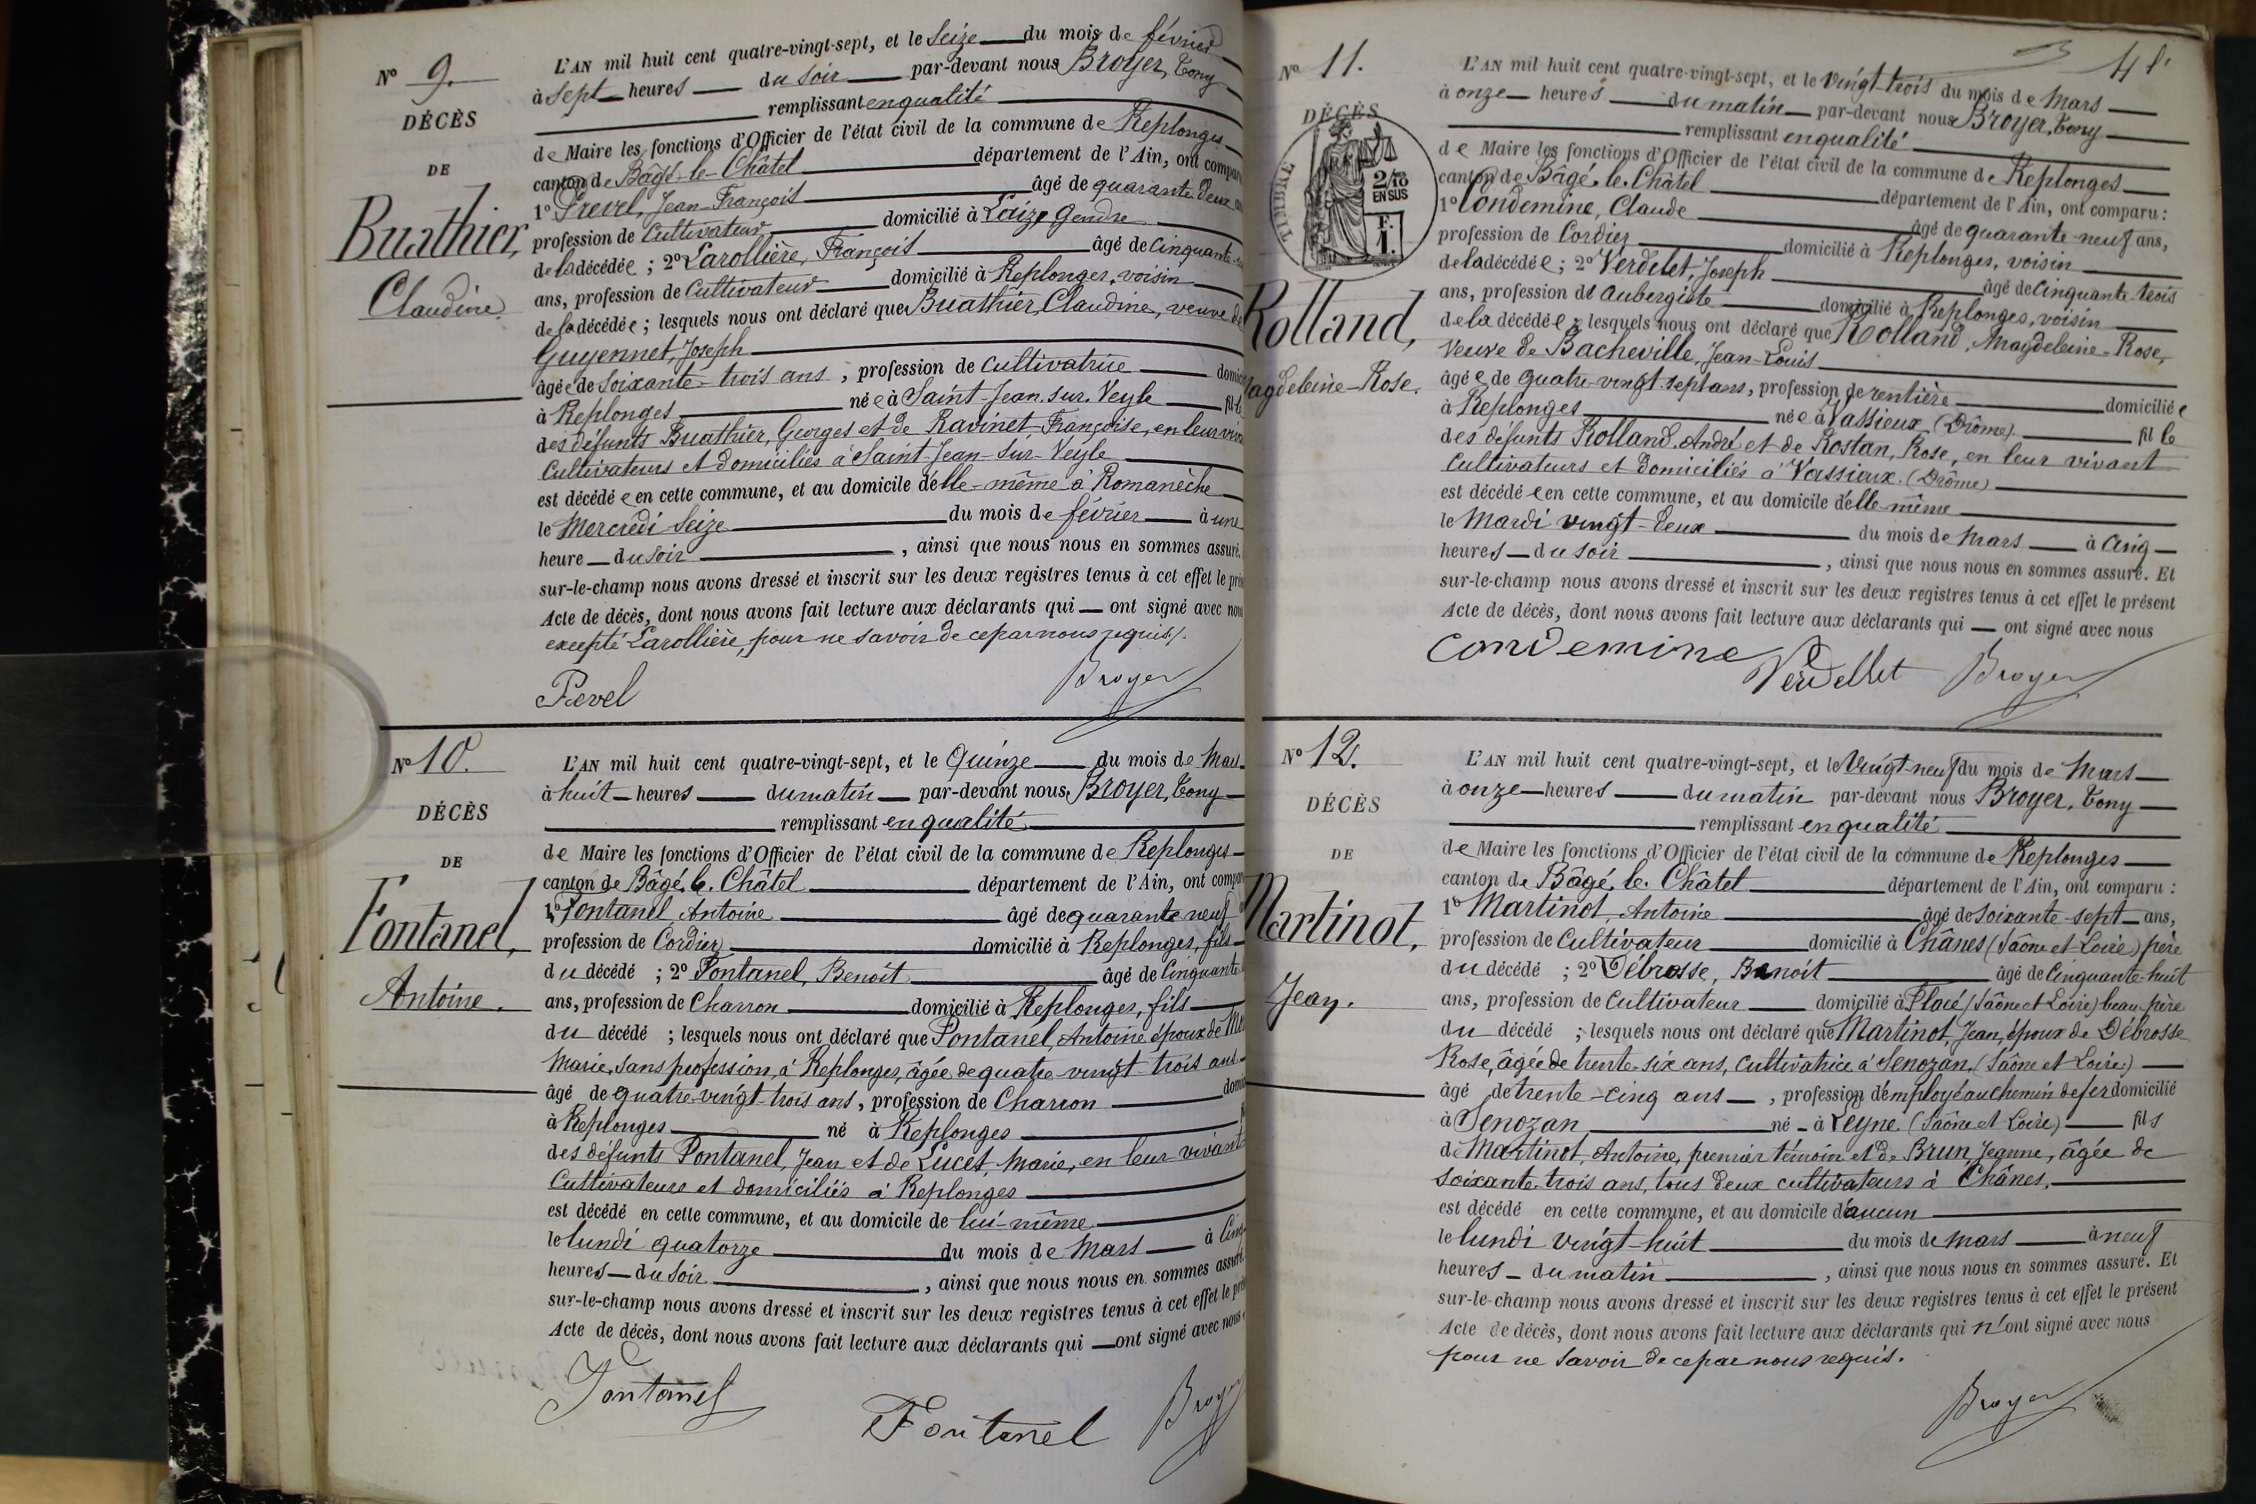 N° 9.
DÉCÈS
DE
Buathier,
Claudine.
L'AN mil huit cent quatre-vingt-sept, et le Seize du mois de février
à Sept heures du Soir par-devant nous Broyer, Tony
remplissant en qualité
de Maire les fonctions d'Officier de l'état civil de la commune de Replonges
canton de Bâgé-le-Châtel département de l'Ain, ont
1° Prevel, Jean-François âgé de quarante-deux
profession de Cultivateur domicilié à Laizé, Gendre
de la décédée ; 2° Larollière, François âgé de Cinquante
ans, profession de Cultivateur domicilié à Replonges, voisin
de la décédée ; lesquels nous ont déclaré que Buathier, Claudine, veuve de
Guyennet, Joseph
âgée de Soixante-trois ans, profession de Cultivatrice
à Replonges née à Saint-Jean-sur-Veyle
des défunts Buathier, Georges et de Ravinet Françoise, en leur
Cultivateurs et domiciliés à Saint-Jean-sur-Veyle
est décédée en cette commune, et au domicile d'elle-même à Romanèche
le Mercredi Seize du mois de février à une
heure du soir , ainsi que nous nous en sommes assuré.
sur-le-champ nous avons dressé et inscrit sur les deux registres tenus à cet effet le
Acte de décès, dont nous avons fait lecture aux déclarants qui ont signé avec nous
excepté Larollière, pour ne savoir de ce par nous requis.
Prevel
Broyer
N° 10.
DÉCÈS
DE
Fontanel,
Antoine.
L'AN mil huit cent quatre-vingt-sept, et le Quinze du mois de Mars
à huit heures du matin par-devant nous Broyer, Tony
remplissant en qualité
de Maire les fonctions d'Officier de l'état civil de la commune de Replonges
canton de Bâgé-le-Châtel département de l'Ain, ont
1° Fontanel, Antoine âgé de quarante-neuf
profession de Cordier domicilié à Replonges, fils
du décédé ; 2° Fontanel, Benoît âgé de Cinquante
ans, profession de Charron domicilié à Replonges, fils
du décédé ; lesquels nous ont déclaré que Fontanel, Antoine époux de
Marie, sans profession, à Replonges, âgée de quatre-vingt-trois ans
âgé de quatre-vingt-trois ans, profession de Charron
à Replonges né à Replonges
des défunts Fontanel, Jean et de Lucet, Marie, en leur vivant
Cultivateurs et domiciliés à Replonges
est décédé en cette commune, et au domicile de lui-même
le lundi quatorze du mois de Mars à
heures du Soir , ainsi que nous nous en sommes assuré.
sur-le-champ nous avons dressé et inscrit sur les deux registres tenus à cet effet le
Acte de décès, dont nous avons fait lecture aux déclarants qui ont signé avec nous
Fontanel
Fontanel
Broyer
N° 11.
DÉCÈS
TIMBRE
2/10
EN SUS
Rolland,
Magdeleine-Rose.
L'AN mil huit cent quatre-vingt-sept, et le vingt-trois du mois de Mars
à onze heures du matin par-devant nous Broyer, Tony
remplissant en qualité
de Maire les fonctions d'Officier de l'état civil de la commune de Replonges
canton de Bâgé-le-Châtel département de l'Ain, ont comparu :
1° Condemine, Claude âgé de quarante-neuf ans,
profession de Cordier domicilié à Replonges, voisin
de la décédée ; 2° Verdelet, Joseph âgé de Cinquante-trois
ans, profession de Aubergiste domicilié à Replonges, voisin
de la décédée ; lesquels nous ont déclaré que Rolland, Magdeleine-Rose,
veuve de Bacheville, Jean-Louis
âgée de quatre-vingt-sept ans, profession de rentière domiciliée
à Replonges née à Vassieux (Drôme) fille
des défunts Rolland, André et de Rostan, Rose, en leur vivant
Cultivateurs et domiciliés à Vassieux. (Drôme)
est décédée en cette commune, et au domicile d'elle-même
le Mardi vingt-deux du mois de Mars à Cinq
heures du soir , ainsi que nous nous en sommes assuré. Et
sur-le-champ nous avons dressé et inscrit sur les deux registres tenus à cet effet le présent
Acte de décès, dont nous avons fait lecture aux déclarants qui ont signé avec nous
Condemine
Verdellet
Broyer
N° 12.
DÉCÈS
DE
Martinot,
Jean.
L'AN mil huit cent quatre-vingt-sept, et le Vingt-neuf du mois de Mars
à onze heures du matin par-devant nous Broyer, Tony
remplissant en qualité
de Maire les fonctions d'Officier de l'état civil de la commune de Replonges
canton de Bâgé-le-Châtel département de l'Ain, ont comparu :
1° Martinot, Antoine âgé de soixante-sept ans,
profession de Cultivateur domicilié à Chânes (Saône et Loire) père
du décédé ; 2° Débrosse, Benoît âgé de Cinquante-huit
ans, profession de Cultivateur domicilié à Flacé (Saône et Loire) beau-père
du décédé ; lesquels nous ont déclaré que Martinot, Jean, époux de Débrosse
Rose, âgée de trente-six ans, Cultivatrice à Senozan. (Saône et Loire)
âgé de trente-cinq ans , profession d'employé au chemin de fer domicilié
à Senozan né à Leyne (Saône et Loire) fils
de Martinot, Antoine, premier témoin et de Brun, Jeanne, âgée de
soixante-trois ans, tous deux cultivateurs à Chânes.
est décédé en cette commune, et au domicile d'aucun
le lundi vingt-huit du mois de mars à neuf
heures du matin , ainsi que nous nous en sommes assuré. Et
sur-le-champ nous avons dressé et inscrit sur les deux registres tenus à cet effet le présent
Acte de décès, dont nous avons fait lecture aux déclarants qui n'ont signé avec nous
pour ne savoir de ce par nous requis.
Broyer